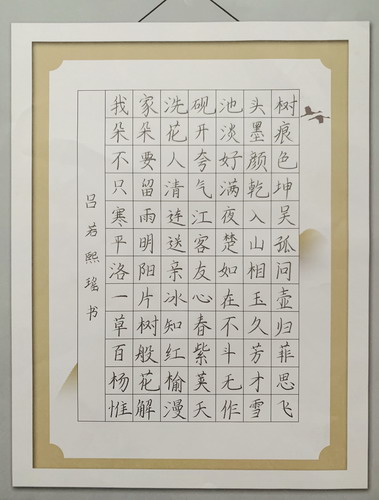 我家洗砚池头树
朵朵花开淡墨痕
不要人夸好颜色
只留清气满乾坤
寒雨连江夜入吴
平明送客楚山孤
洛阳亲友如相问
一片冰心在玉壶
草树知春不久归
百般红紫斗芳菲
杨花榆荚无才思
惟解漫天作雪飞
吕若熙瑶书